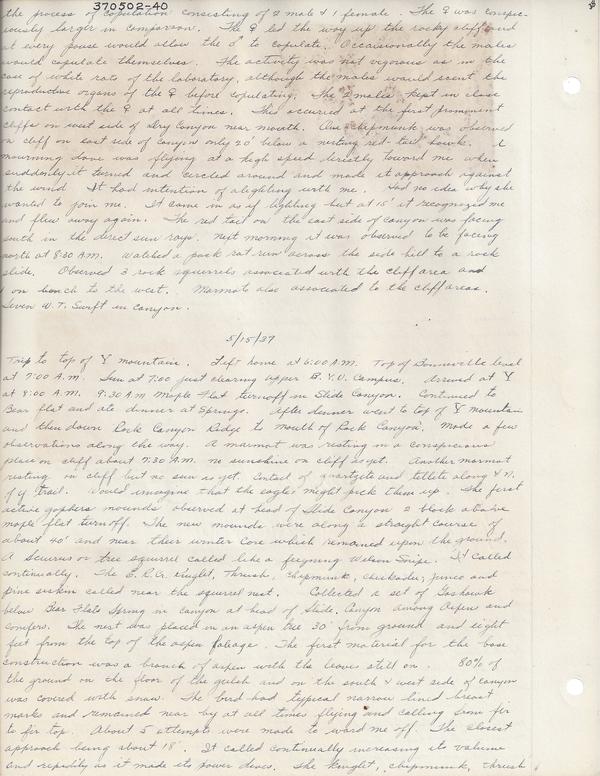 370502-40
the process of copulation consisting of 2 male & 1 female. The ♀ was conspic-
uously larger in comparison. The ♀ led the way up the rocky cliff and
at every pause would allow the ♂ to copulate. Occasionally the males
would copulate themselves. The activity was not vigorous as in the
case of white rats of the laboratory, although the males would scent the
reproductive organs of the ♀ before copulating. The 2 males kept in close
contact with the ♀ at all times. This occurred at the first prominent
cliffs on west side of Dry Canyon near mouth. One chipmunk was observed
on cliff on east side of canyon only 20' below a nesting red-tail hawk. A
mourning dove was flying at a high speed directly toward me when
suddenly it turned and circled around and made it approach against
the wind. It had intention of alighting with me. Had no idea why she
wanted to join me. It came in as if lighting but at 15' it recognized me
and flew away again. The red tail on the east side of canyon was facing
south in the direct sun rays. Next morning it was observed to be facing
north at 8:30 A.M. Watched a pack rat run across the side hill to a rock
slide. Observed 3 rock squirrels associated with the cliff area and
1 on bench to the west. Marmots also associated to the cliff areas.
Seven W.T. Swift in canyon.
5/15/37
Trip to top of Y mountain. Left home at 6:00 A.M. Top of Bonneville level
at 7:00 A.M. Sun at 7:00 just clearing upper B.Y.U. Campus. Arrived at Y
at 8:00 A.M. 9:30 A.M. Maple Flat turnoff in Slide Canyon. Continued to
Bear flat and ate dinner at Springs. After dinner went to top of Y mountain
and then down Rock Canyon Ridge to mouth of Rock Canyon. Made a few
observations along the way. A marmot was resting in a conspicuous
place on cliff about 7:30 A.M. no sunshine on cliff as yet. Another marmot
resting on cliff but no sun as yet. Contact of quartzite and tillite along
of Y trail. Would imagine that the eagles might pick them up. The first
active gophers mounds observed at head of Slide Canyon 2 block above
maple flat turnoff. The new mounds were along a straight course of
about 40' and near their winter core which remained upon the ground.
A Sciurus or tree squirrel called like a feigning Wilson Snipe. It called
continually. The Kinglet, Thrush, Chipmunk, Chickadee, Junco and
pine siskin called near the squirrel nest. Collected a set of Goshawk
below Bear Flats Spring in canyon at head of Slide Canyon among Aspen and
Conifers. The nest was placed in an aspen tree 30' from ground and eight
feet from the top of the aspen foliage. The first material for the base
construction was a branch of aspen with the leaves still on. 80% of
the ground on the floor of the gulch and on the south & west side of canyon
was covered with snow. The bird had typical narrow lined breast
marks and remained near by at all times flying and calling from fir
to fir top. About 5 attempts were made to ward me off. The closest
approach being about 18'. It called continually increasing its volume
and rapidity as it made its power dives. The kinglet, chipmunk, thrush